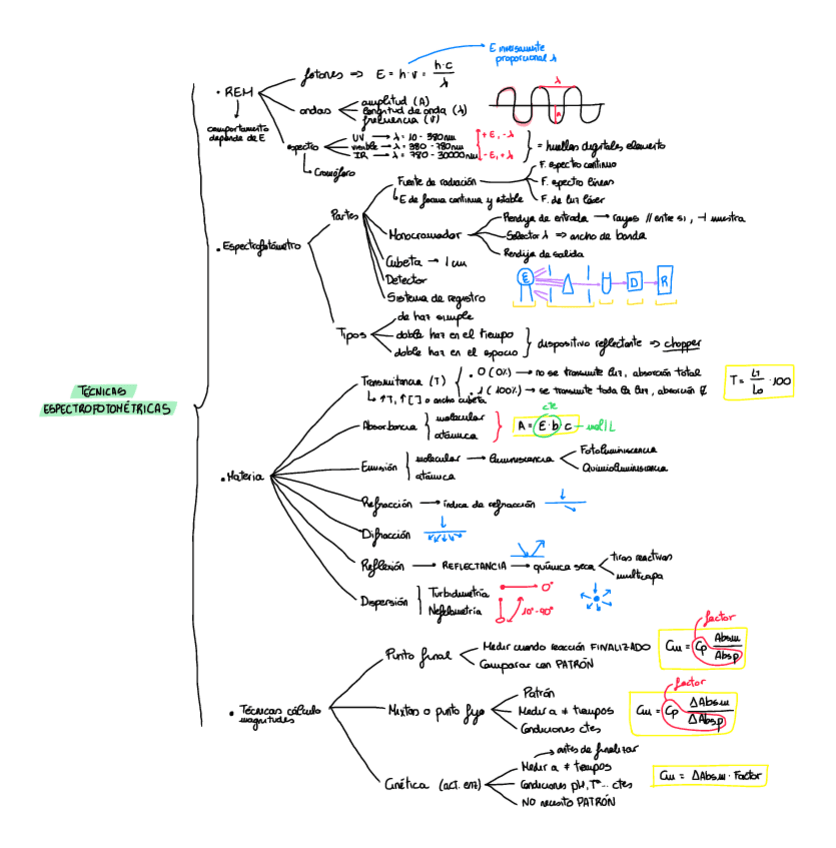 TÉCNICAS
ESPECTROFOTOMÉTRICAS
• REM
comportamiento
depende de E
fotones => E = h·ν = h·c / λ
E inversamente
proporcional λ
ondas
amplitud (A)
longitud de onda (λ)
frecuencia (ν)
λ
A
espectro
UV → λ = 10 - 380nm
visible → λ = 380 - 780nm
IR → λ = 780 - 30000nm
+E, -λ
-E, +λ
= huellas digitales elemento
Cromóforo
• Espectrofotómetro
Partes
Fuente de radiación
E de forma continua y estable
F. espectro continuo
F. espectro líneas
F. de luz láser
Monocromador
Rendija de entrada → rayos // entre si, ⊣ muestra
Selector λ => ancho de banda
Rendija de salida
Cubeta → 1 cm
Detector
Sistema de registro
E
D
R
Tipos
de haz simple
doble haz en el tiempo
doble haz en el espacio
dispositivo reflectante => chopper
• Materia
Transmitancia (T)
↑T, ↑[ ] o ancho cubeta
. 0 (0%) → no se transmite luz, absorción total
. 1 (100%) → se transmite toda la luz, absorción ∅
T = Lt / Lo · 100
Absorbancia
molecular
atómica
cte
A = E·b·c – mol/L
Emisión
molecular → luminiscencia
atómica
Fotoluminiscencia
Quimioluminiscencia
Refracción → índice de refracción
Difracción
Reflexión → REFLECTANCIA → química seca
tiras reactivas
multicapa
Dispersión
Turbidimetría
0°
Nefelometría
10°-90°
• Técnicas cálculo
magnitudes
Punto final
Medir cuando reacción FINALIZADO
Comparar con PATRÓN
factor
Cm = Cp Absm / Absp
Mixtas o punto fijo
Patrón
Medir a ≠ tiempos
Condiciones ctes
factor
Cm = Cp ΔAbsm / ΔAbsp
Cinética (act. enz)
antes de finalizar
Medir a ≠ tiempos
Condiciones pH, Tª... ctes
NO necesito PATRÓN
Cm = ΔAbsm · Factor